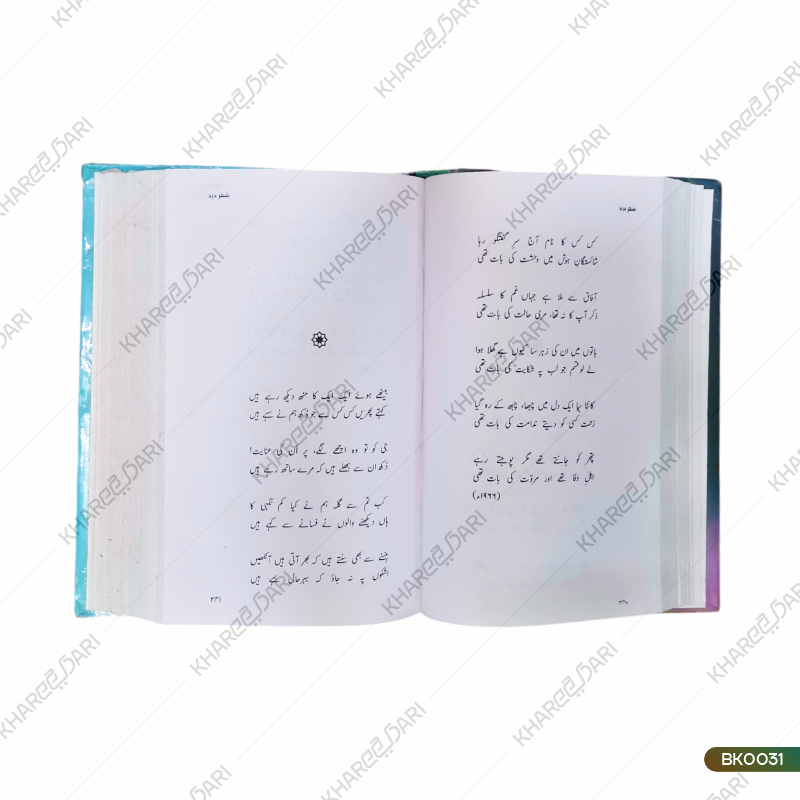 کس کس کا نام آج سرِ گفتگو رہا
شائستگانِ ہوش میں وحشت کی بات تھی
آفاق سے ملا ہے جہاں غم کا سلسلہ
ذکر آپ کا نہ تھا، مری حالت کی بات تھی
باتوں میں ان کی زہر سا کیوں ہے گھلا ہوا
لے لو قسم جو لب پہ شکایت کی بات تھی
کانٹا سا ایک دل میں چبھا، چبھ کے رہ گیا
زحمت کسی کو دیتے ندامت کی بات تھی
پتھر کو جانتے تھے مگر پوجتے رہے
اہلِ وفا تھے اور مروّت کی بات تھی
(۱۹۶۶ء)
۲۳۰
بیٹھے ہوئے ایک ایک کا منھ دیکھ رہے ہیں
کہتے پھریں کس کس سے جو دکھ ہم نے سہے ہیں
جی کو تو وہ اچھے لگے، پر اُن کی عنایت!
دکھ ان سے بھلے ہیں کہ مرے ساتھ رہے ہیں
کب تم سے گلہ ہم نے کیا کم نگہی کا
ہاں دیکھنے والوں نے فسانے سے کہے ہیں
ہنسنے سے بھی سنتے ہیں کہ بھر آتی ہیں آنکھیں
اشکوں پہ نہ جاؤ کہ بہرحال بہے ہیں
۲۳۱
BK0031